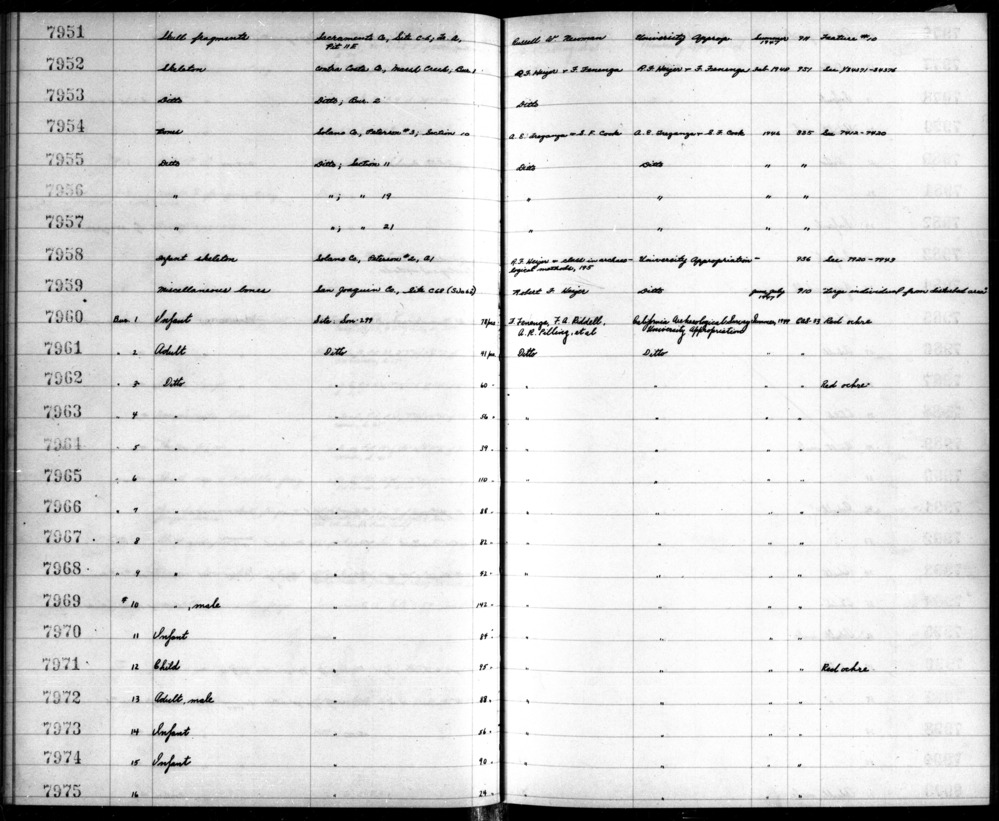 7951 Skull fragments Sacramento Co, Site C-6, Tr. A, Russell W. Newman University Approp. Summer 911 Feature #10
Pit 11E 1947
7952 Skeleton Contra Costa Co, Creek, Bur 1 R.F. Heizer & F. Fenenga R.F. Heizer & F. Fenenga 1948 951 See
7953 Ditto Ditto; Bur. 2 Ditto
7954 Bones Solano Co, Peterson #3; Section 10 A. E. Treganza & S. F. Cook A. E. Treganza & S. F. Cook 1946 835 See 7412-7430
7955 Ditto Ditto; Section 11 Ditto Ditto " "
7956 " "; " 19 " " " "
7957 " "; " 21 " " " "
7958 Infant skeleton Solano Co, Peterson #2, A1 R.F. Heizer & class in archaeo- University Appropriation - 936 See 7920-7943
logical methods, 195
7959 Miscellaneous bones San Joaquin Co, Site C68 (SJo68) Robert F. Heizer Ditto June-July 910 Large individual from disturbed area
1947
7960 Bur. 1 Infant Site: Son-299 78 pcs J. Fenenga, F. A. Riddell, California Archaeological Survey Summer, 1949 Red ochre
A. R. Pilling, et al University Appropriation
7961 " 2 Adult Ditto 41 pcs Ditto Ditto " "
7962 " 3 Ditto " 60 " " " " " Red ochre
7963 " 4 " " 56 " " " " "
7964 " 5 " " 39 " " " " "
7965 " 6 " " 110 " " " " "
7966 " 7 " " 28 " " " " "
7967 " 8 " " 82 " " " " "
7968 " 9 " " 42 " " " " "
7969 " 10 ", male " 142 " " " " "
7970 11 Infant " 24 " " " " "
7971 12 Child " 95 " " " " " Red ochre
7972 13 Adult, male " 88 " " " " "
7973 14 Infant " 56 " " " " "
7974 15 Infant " 90 " " " " "
7975 16 " 24 " " " " "